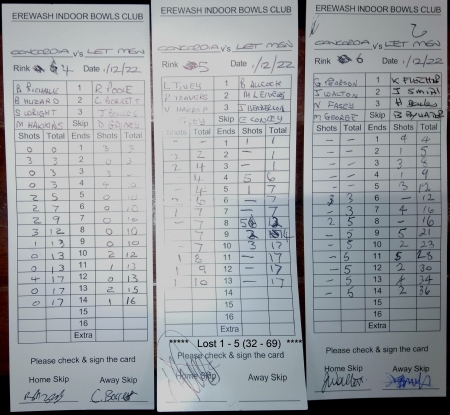 EREWASH INDOOR BOWLS CLUB
CONCORDIA v's LET MEN
Rink 4 Date 1/12/22
1 R POOLE
2
S WRIGHT 3
M HAWKINS 4
Shots Total Ends Shots Total
0 0 1 3 3
3 3 2 0 3
0 3 3
0 3 4
2 5 5 0 10
2 7 6 0 10
2 9 7 0 10
3 12 8 0 10
1 13 9 0 10
0 13 10 2 12
0 13 11 1 13
4 17 12 0 13
0 17 13 2 15
0 17 14 1 16
15
16
Extra
Please check & sign the card
Home Skip Away Skip
EREWASH INDOOR BOWLS CLUB
CONCORDIA v's LET MEN
Rink 5 Date 1/12/22
L TIVEY 1 B ALLCOCK
P TRAVERS 2 M LEIVERS
3
4
Shots Total Ends Shots Total
- - 1 1 1
2 2 2 - 1
2 4 3 - 1
- 4 4 5 6
- 4 5 1 7
6 - 7
1 7 7 - 7
- 7 8
- 7 9
- 7 10 3 17
1 8 11 - 17
1 9 12 - 17
1 10 13 - 17
14
15
16
Extra
***** Lost 1 - 5 (32 - 69) *****
Please check & sign the card
Home Skip Away Skip
EREWASH INDOOR BOWLS CLUB
CONCORDIA v's LET MEN
Rink 6 Date 1/12/22
G PEARSON 1
J WALTON 2 J SMITH
N FASEY 3
M GEORGE 4
Shots Total Ends Shots Total
- - 1 4 4
- - 2 1 5
- - 3 3 8
- - 4 1 9
- - 5 3 12
3 3 6 - 12
- 3 7 4 16
2 5 8 - 16
- 5 9 5 21
- 5 10 2 23
- 5 11 5 28
- 5 12 2 30
- 5 13 4 34
- 5 14 2 36
15
16
Extra
Please check & sign the card
Home Skip Away Skip